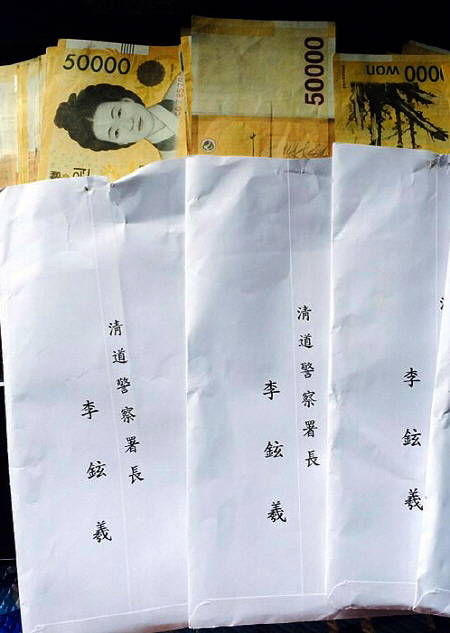 50000
50000
won
清道警察署長
李鉉羲
清道警察署長
李鉉羲
李鉉羲